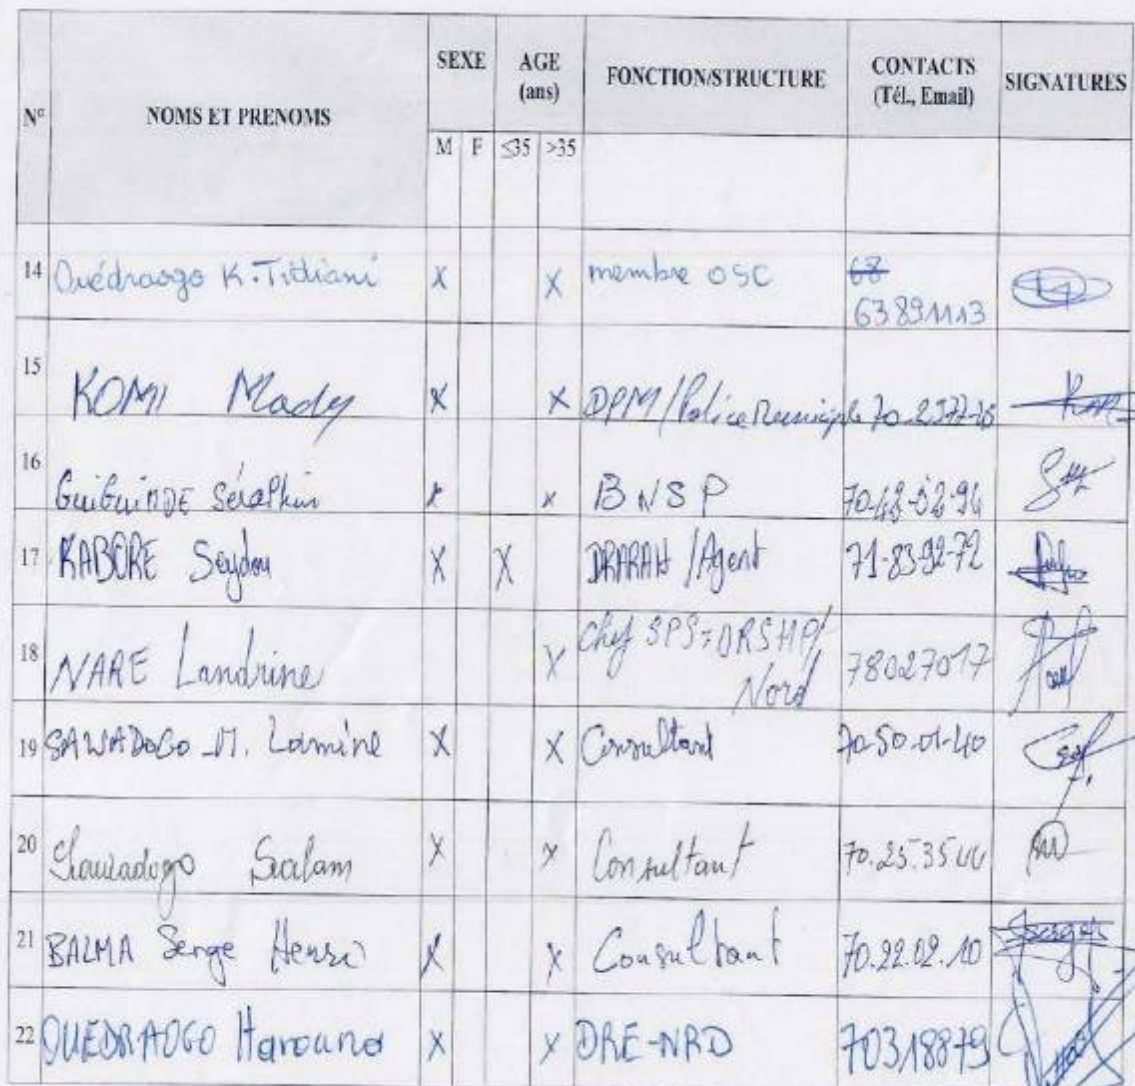 N° NOMS ET PRENOMS SEXE AGE (ans) FONCTION/STRUCTURE CONTACTS (Tél., Email) SIGNATURES
M F ≤35 >35
14 Ouédraogo K. Tidiani X X membre OSC 68 63891113
15 KOMI Mady X X DPM/Police Municiple 70
16 GuiGuiMDE Séraphin X X BNSP
17 KABORE Seydou X X DRARAH/Agent 71-83-92-72
18 NARE Landrine X Chef SPS-DRSHP/Nord 78027017
19 SAWADOGO M. Lamine X X Consultant 70-50-01-40
20 Sawadogo Salam X X Consultant
21 BALMA Serge Henri X X Consultant 70.22.02.10
22 OUEDRAOGO Harouna X X DRE-NRD 70318879